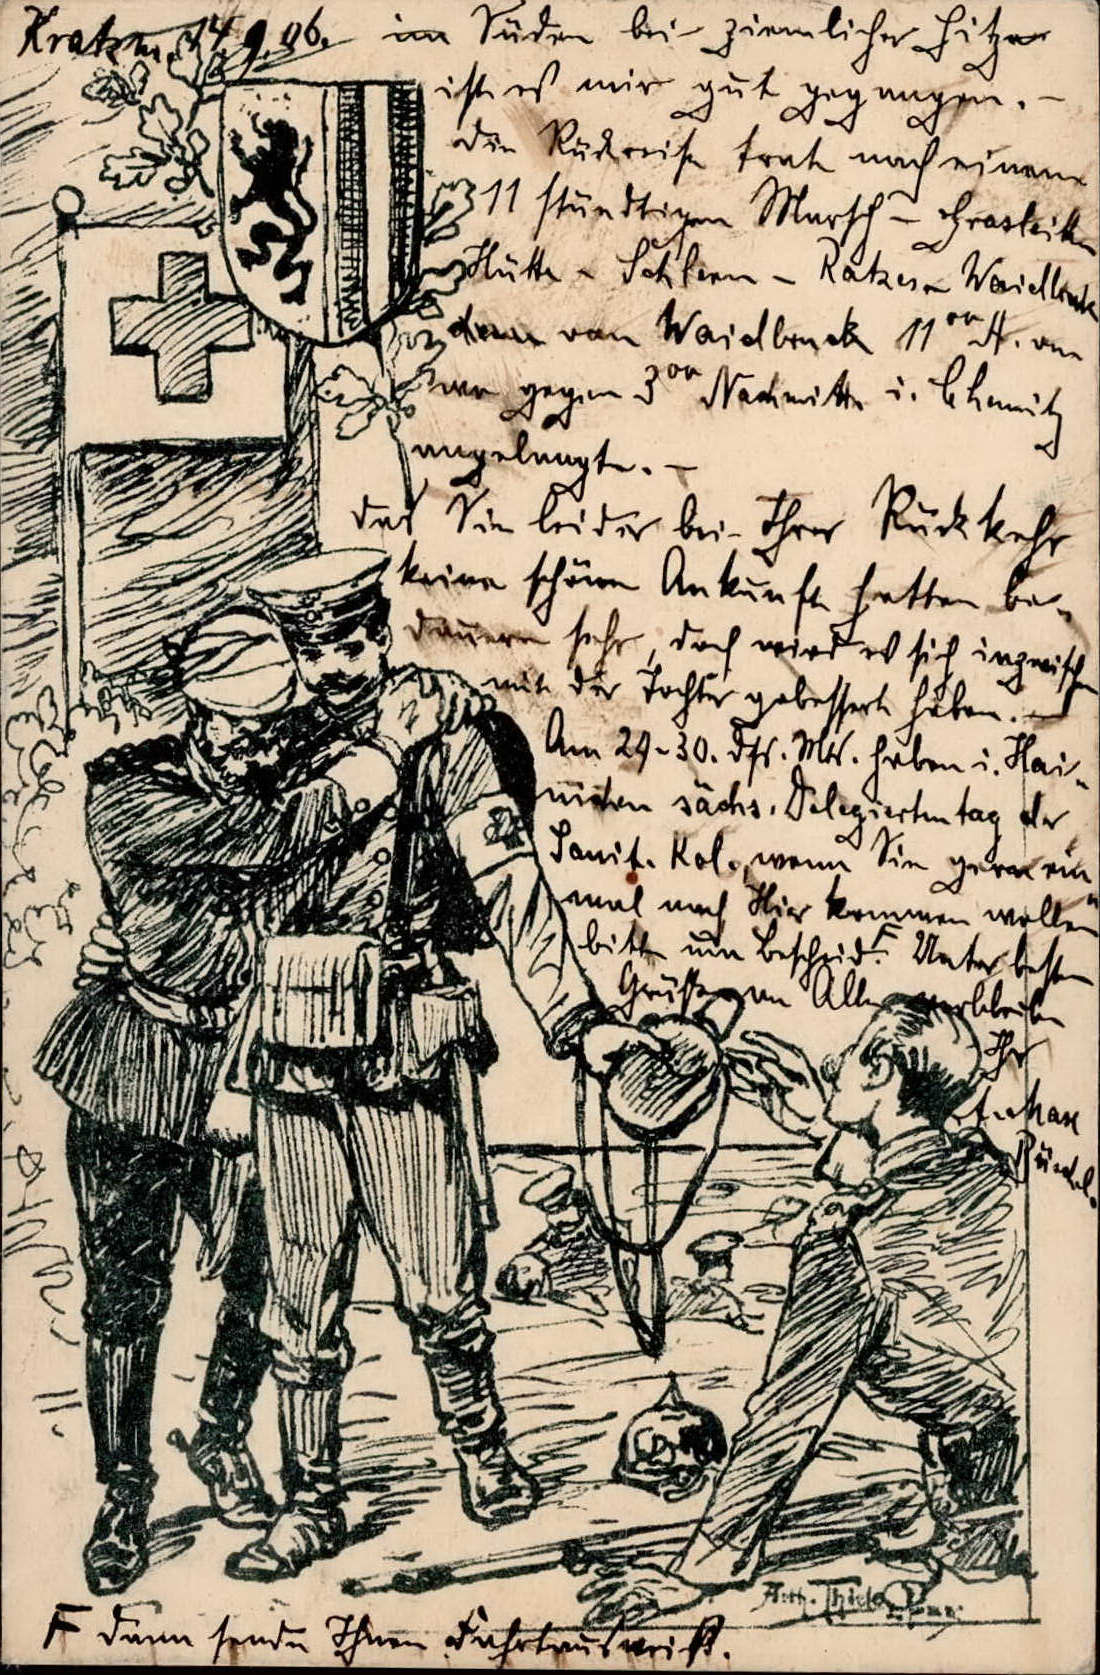 14.9.06. im Süden bei ziemlicher Hitze
ist es mir gut gegangen. –
die Rückreise trat nach einem
11 stündtigen Marsch – Grasleiten
Hütte – Schlern – Ratzes – Waidbruck
dann von Waidbruck 11⁰⁰ A. an
gegen 3⁰⁰ Nachmitts i. Chemnitz
angelangte. –
das Sie leider bei Ihrer Rückkehr
keine schöne Ankunft hatten be-
dauern sehr, doch wird es sich inzwischen
mit der Tochter gebessert haben. –
Am 29–30. dss. Mts. haben i. Hai-
nichen sächs. Delegiertentag der
Sanit. Kol., wenn Sie gern ein
mal nach Hier kommen wollen
bitte um Bescheid. F Unter besten
Grüssen von Allen verbleibe
Ihr
Max
Arth. Thiele
F dann sende Ihnen Fahrtausweiss.